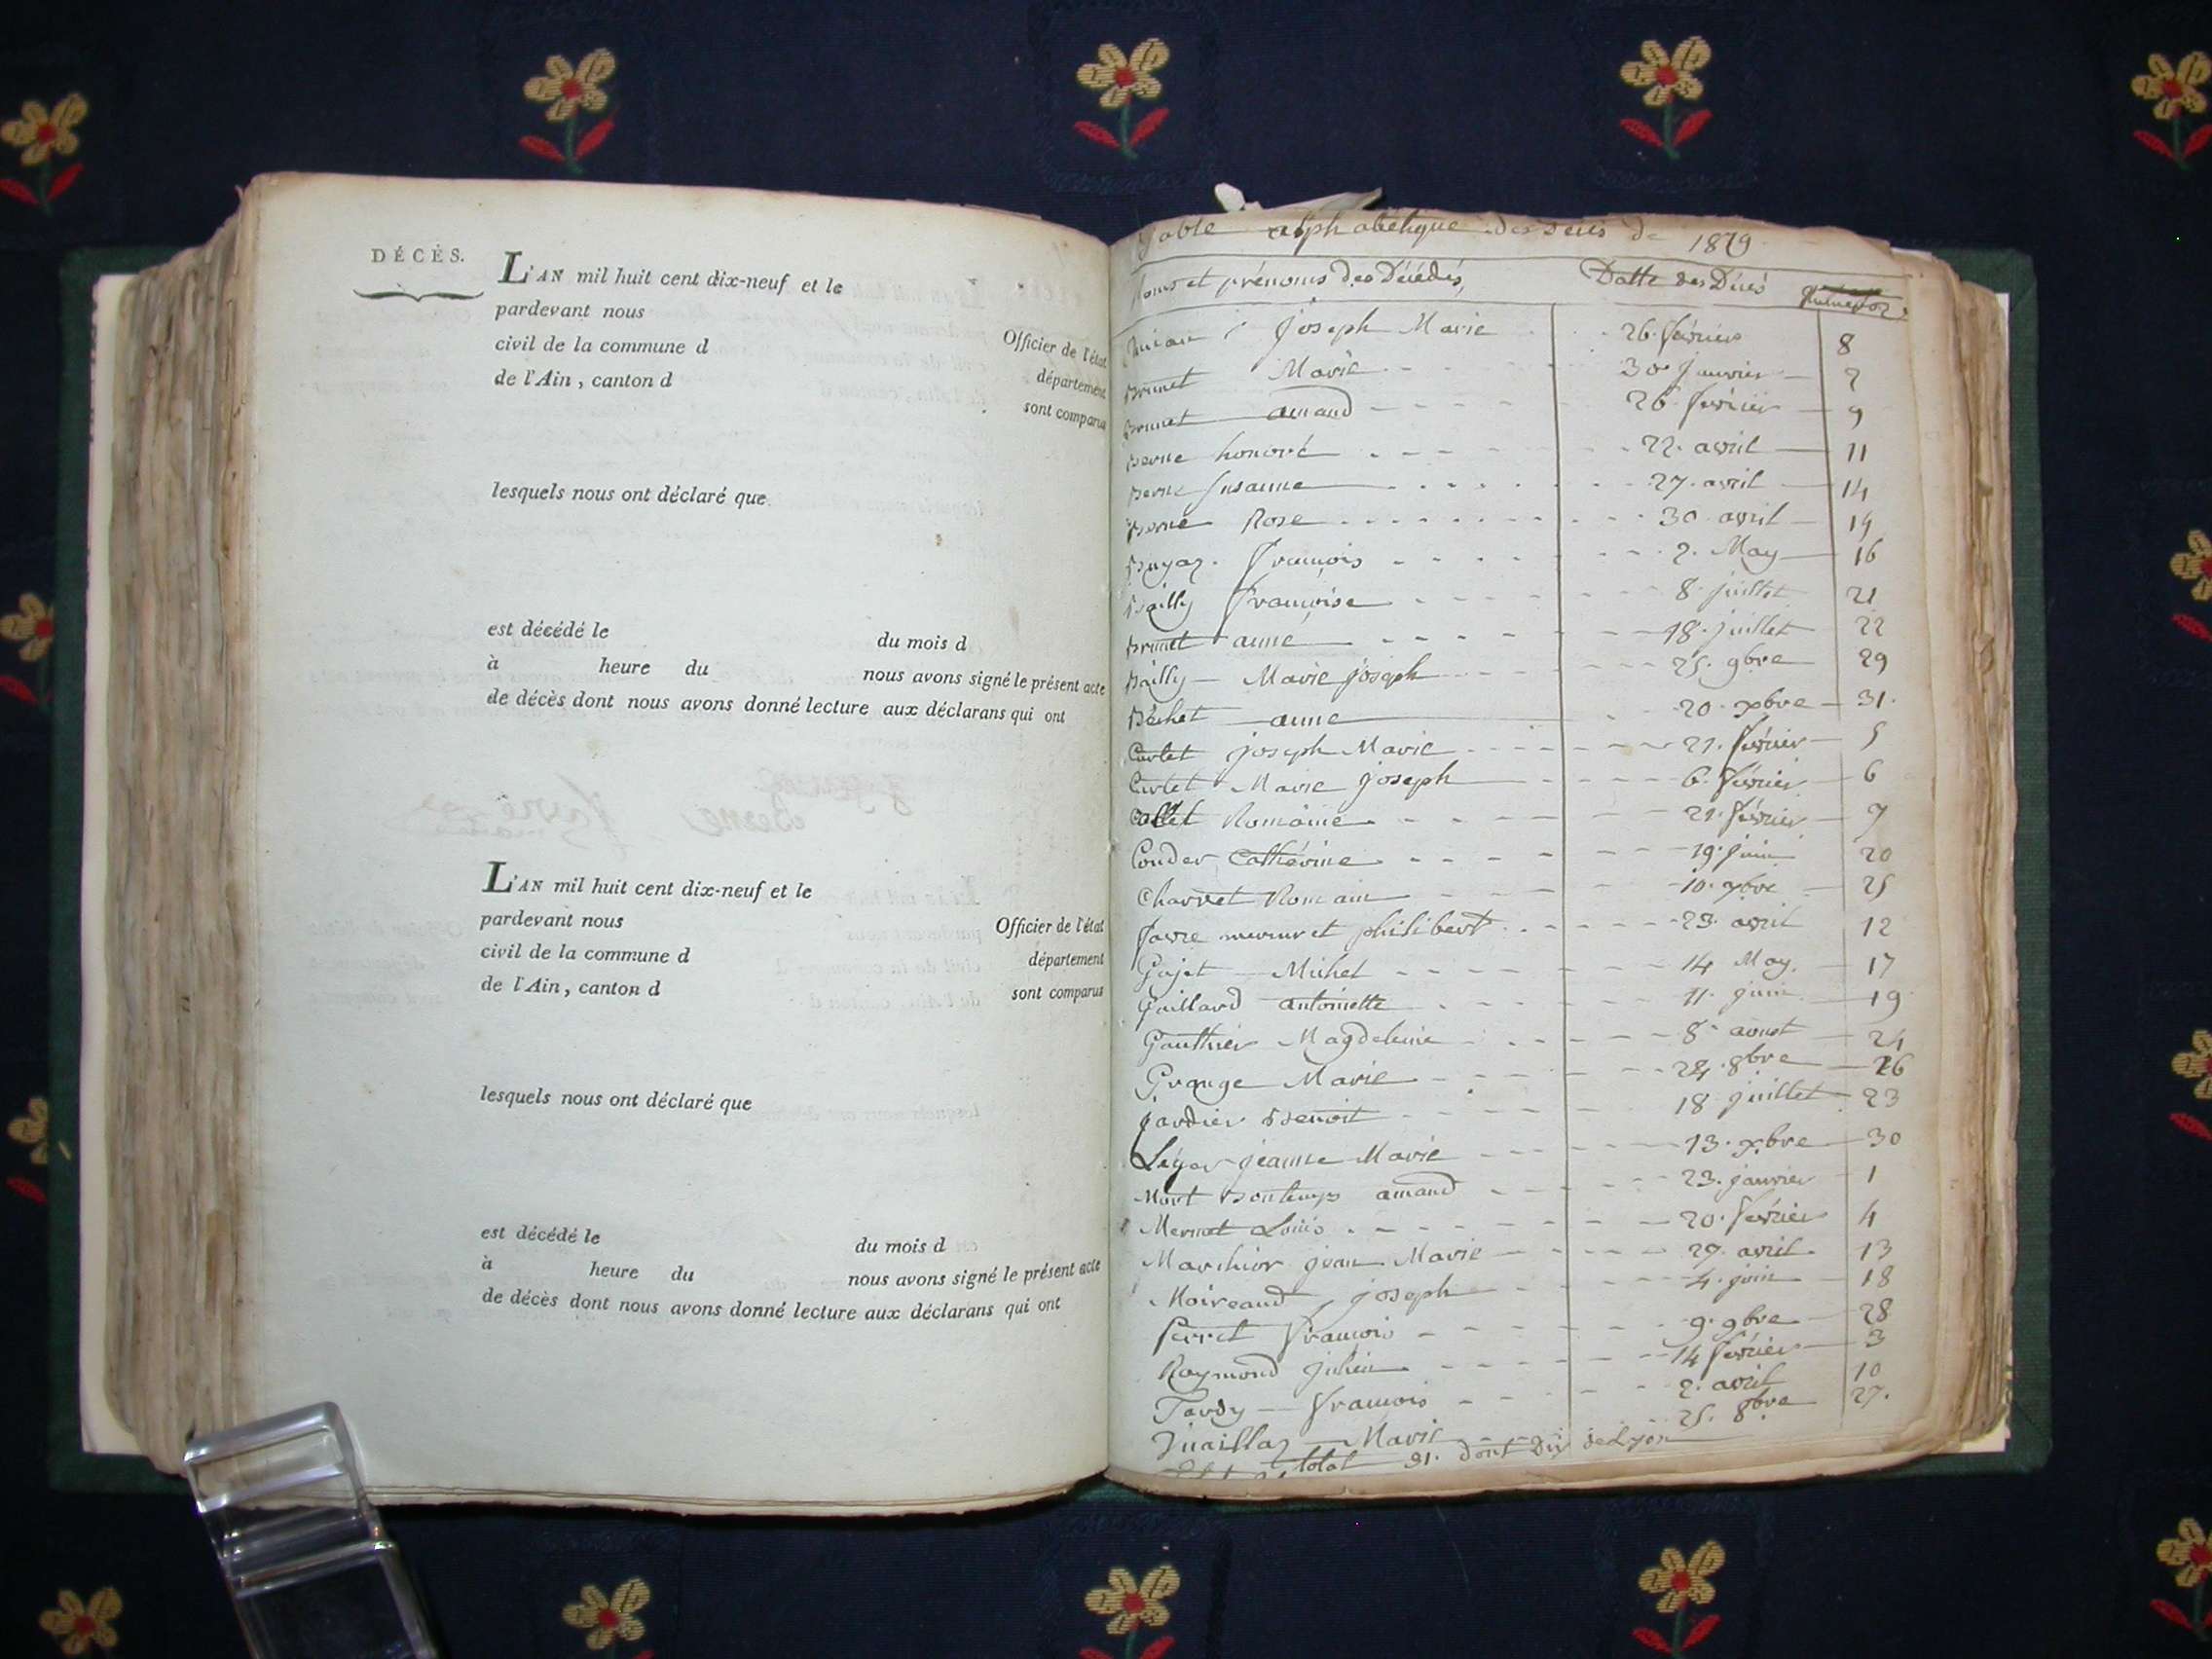 DÉCÈS.
L'AN mil huit cent dix-neuf et le
pardevant nous
Officier de l'état
civil de la commune d
département
de l'Ain, canton d
sont comparus
lesquels nous ont déclaré que
est décédé le du mois d
à heure du nous avons signé le présent acte
de décès dont nous avons donné lecture aux déclarans qui ont
L'AN mil huit cent dix-neuf et le
pardevant nous Officier de l'état
civil de la commune d département
de l'Ain, canton d sont comparus
lesquels nous ont déclaré que
est décédé le du mois d
à heure du nous avons signé le présent acte
de décès dont nous avons donné lecture aux déclarans qui ont
Table alphabetique des Décès de 1819
Noms et prénoms des Décédés, Datte des Décés
joseph Marie 26. février 8
Brunet Marie 30 janvier 2
Brunet amand 26 février 9
Berne honoré 22. avril 11
Berne Susanne 27. avril 14
Berne Rose 30 avril 15
François 2. May 16
Bailly Françoise 8. juillet 21
Brunet anne 18. juillet 22
Bailly Marie joseph 25. 9bre 29
Béchet anne 20. xbre 31.
Curlet joseph Marie 21. février 5
Curlet Marie joseph 6. février 6
Collet Romaine 21. février 7
Conder Cathérine 19. juin 20
Charvet Romain 10. 7bre 25
favre philibert 23. avril 12
Gojet Michel 14 May. 17
Gaillard antoinette 11. juin 19
Gauthier Magdeleine 8. aoust 24
Grange Marie 24. 8bre 26
Jardier Benoit 18 juillet 23
Léger jeanne Marie 13. xbre 30
Mort Bontemps amand 23. janvier 1
Mermet Louis 20. février 4
Marchier jean Marie 27. avril 13
Moireaud, joseph 4. juin 18
Perret François 9. 9bre 28
Raymond julien 14 février 3
Tardy François 2. avril 10
Marie 25. 8bre 27.
total 31. dont Dix de Lyon